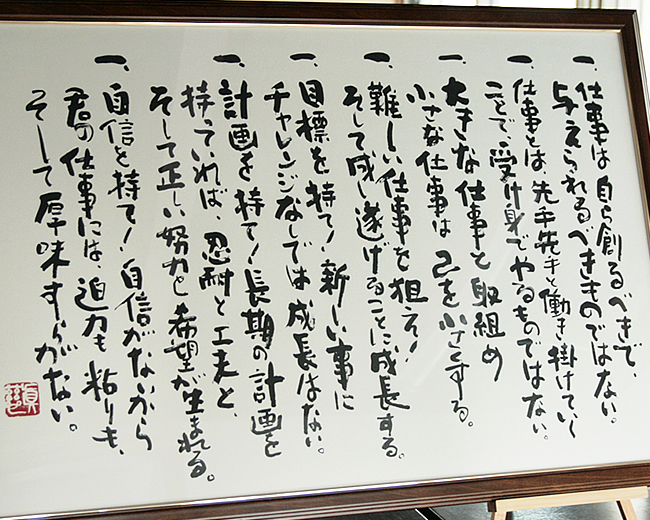 一、仕事は自ら創るべきで、
与えられるべきものではない。
一、仕事とは、先手先手と働き掛けていく
ことで、受け身でやるものではない。
一、大きな仕事と取組め
小さな仕事は己を小さくする。
一、難しい仕事を狙え！
そして成し遂げることに成長する。
一、目標を持て！新しい事に
チャレンジなしでは成長はない。
一、計画を持て！長期の計画を
持っていれば、忍耐と工夫と、
そして正しい努力と希望が生まれる。
一、自信を持て！自信がないから
君の仕事には、迫力も粘りも、
そして厚味すらがない。